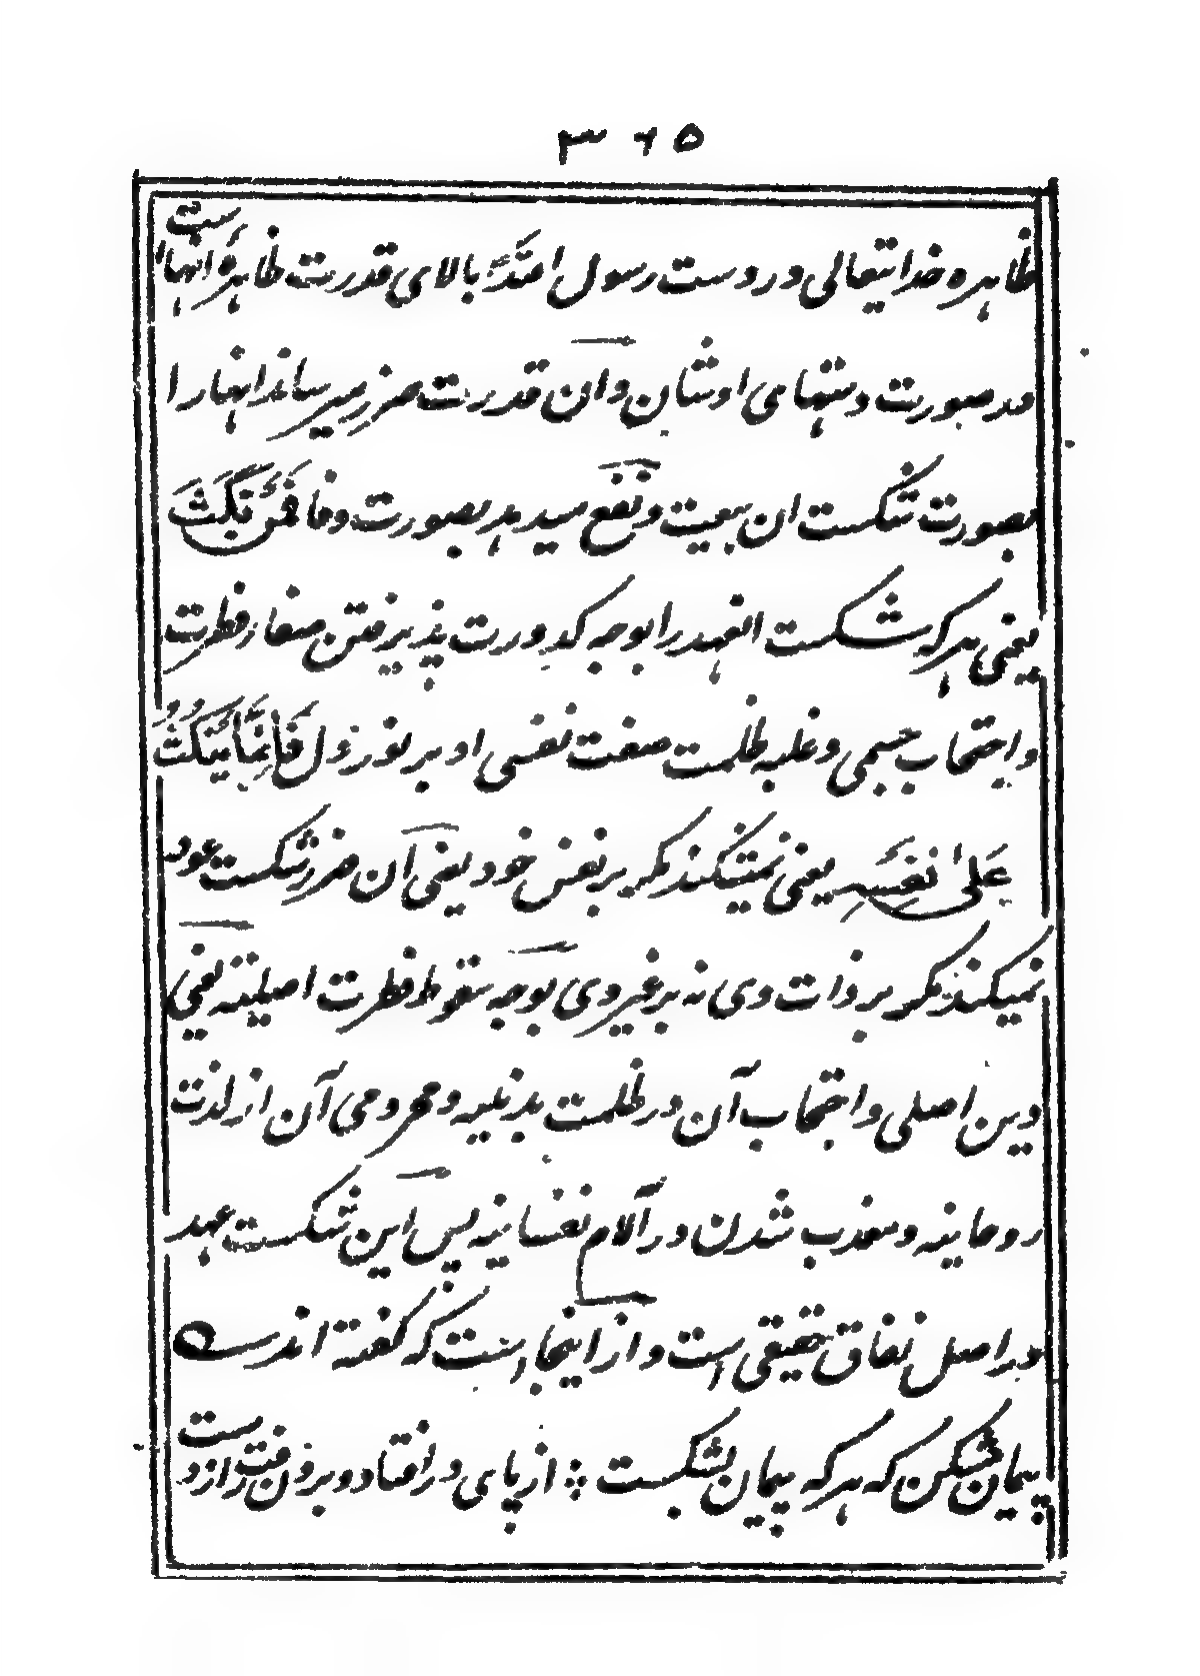 ۳۶۵
ظاهره خدایتعالی در دست رسول اللهّ بالای قدرت ظاهرهٔ انهااست
در صورت دستهامی اوشان وان قدرت ضرر میرساند اینهارا
بصورت شکست ان بیعت و نفع میدهد بصورت وفا فَمَنْ نَّكَثَ
یعنی هر که شکست انعهد را بوجه کدورت پذیرفتن صفار فطرت
و احتجاب جسمی و غلبه ظلمت صفت نفسی او بر نور دل فَاِنَّمَا يَنْكُثُ
عَلٰى نَفْسِهٖ یعنی نمیشکند مگر بر نفس خود یعنی آن ضرر شکست عود
نمیکند مگر بر ذات وی نه بر غیر وی بوجه سقوط فطرت اصلیه یعنی
دین اصلی و احتجاب آن در ظلمت بدنیه و محرومی آن از لذت
روحانیه و معذب شدن در آلام نفسانیه پس این شکست عهد
در اصل نفاق حقیقی است و از اینجا است که گفته اند ه
پیمان مشکن که هر که پیمان بشکست ؛ از پای در افتاد و برون رفت ز دست